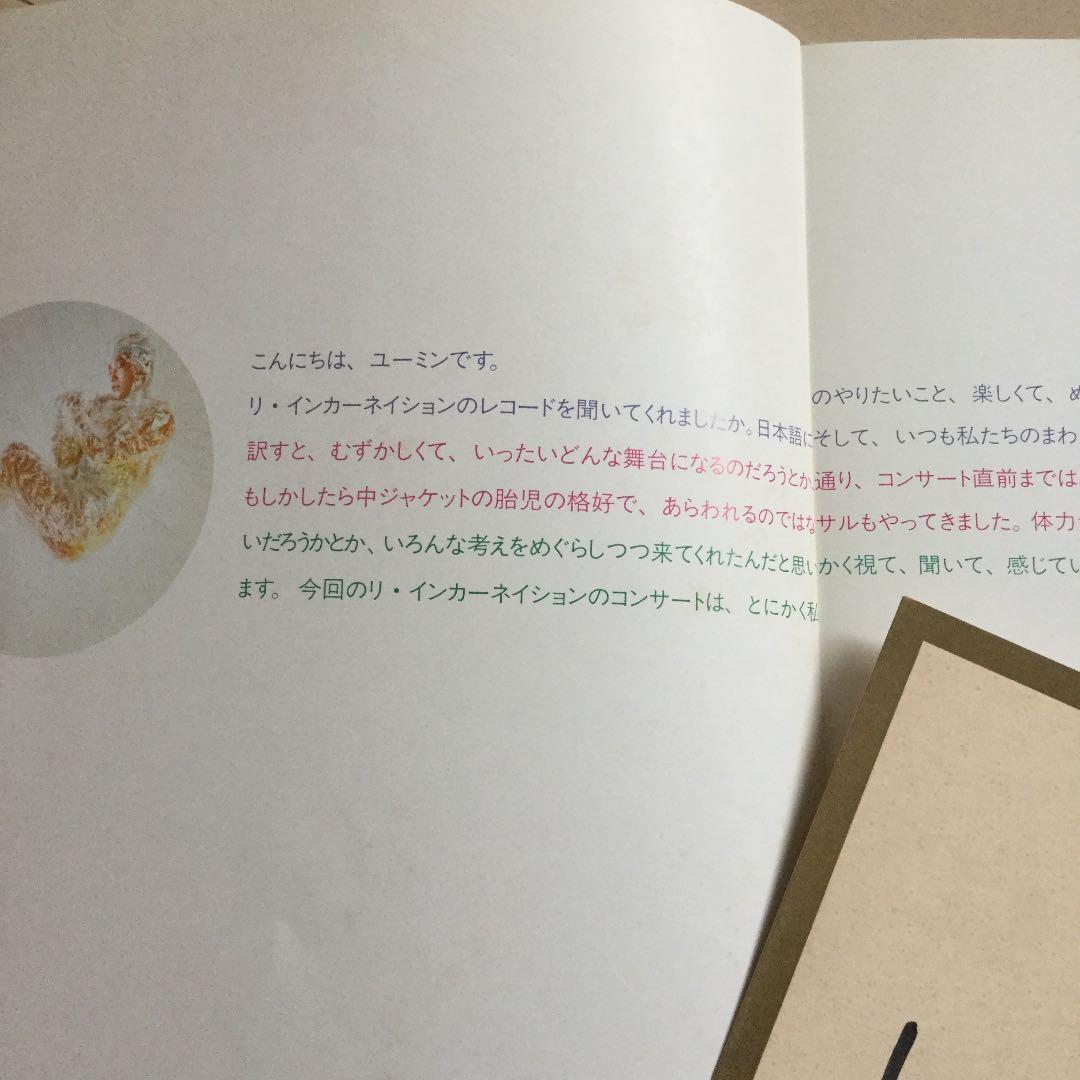 こんにちは、ユーミンです。
リ・インカーネイションのレコードを聞いてくれましたか。日本語に
訳すと、むずかしくて、いったいどんな舞台になるのだろうとか
もしかしたら中ジャケットの胎児の格好で、あらわれるのではな
いだろうかとか、いろんな考えをめぐらしつつ来てくれたんだと思い
ます。今回のリ・インカーネイションのコンサートは、とにかく私
のやりたいこと、楽しくて、め
そして、いつも私たちのまわ
通り、コンサート直前までは
サルもやってきました。体力
かく視て、聞いて、感じてい